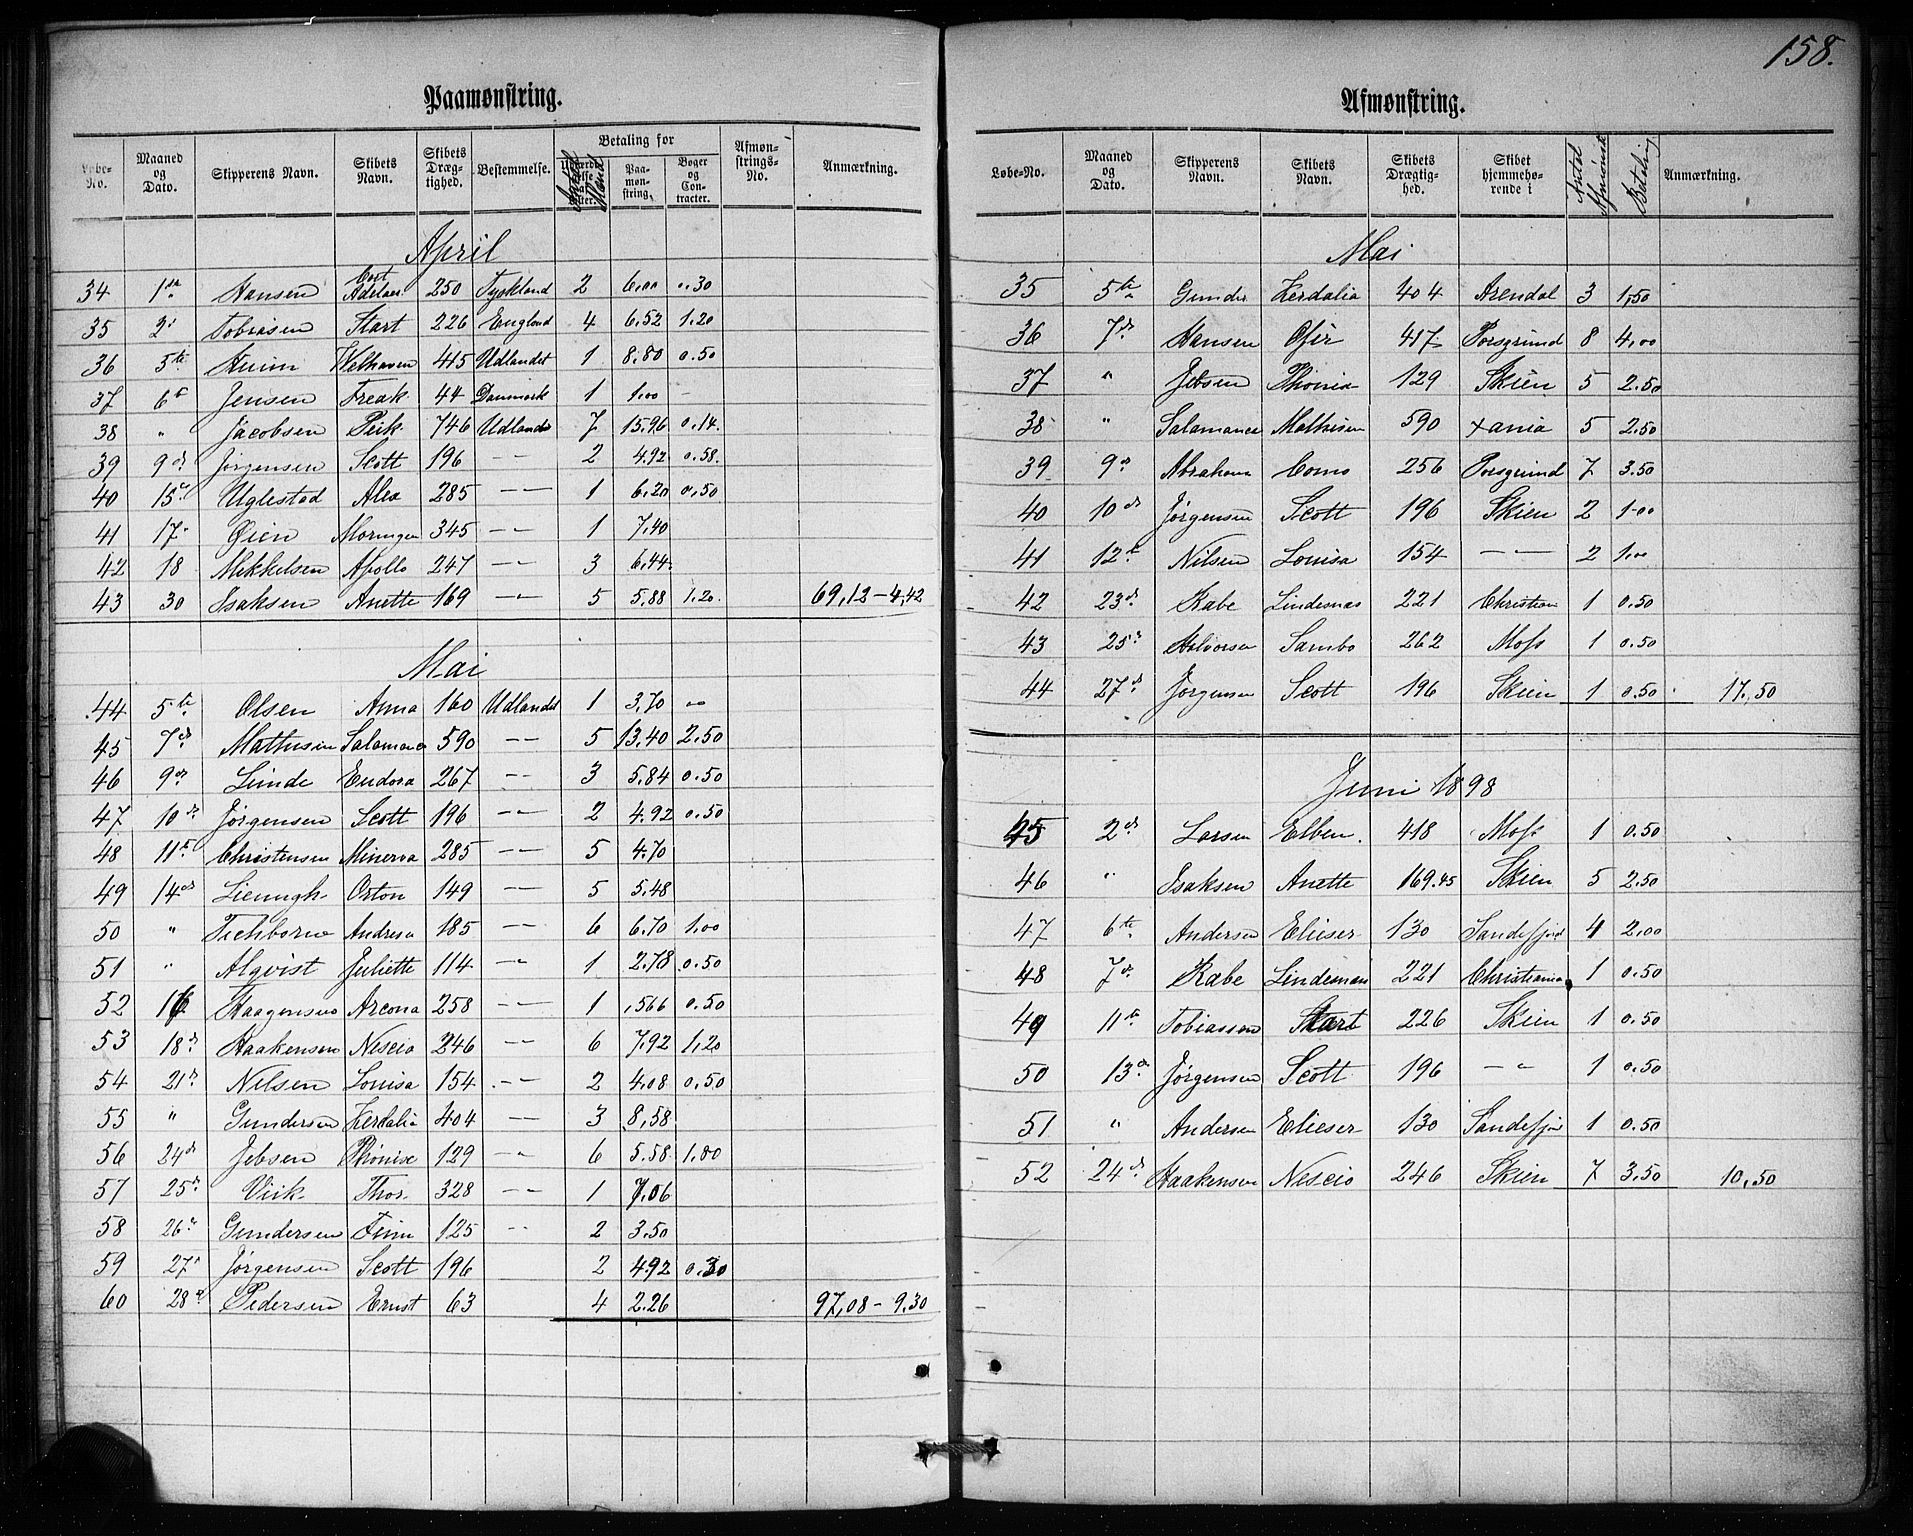 158.
Paamønstring.
Løbe-No. Maaned og Dato. Skipperens Navn. Skibets Navn. Skibets Drægtighed. Bestemmelse. Betaling for Paamønstring. Bøger og Contracter. Afmønstrings-No. Anmærkning.
April
34 1ste Hansen Cort Adelaer 250 Tydskland 2 6,00 0.30
35 2' Tobiasen Start 226 England 4 6,52 1.20
36 5te Welhaven 415 Udlandet 1 8,80 0.50
37 6t Jensen Freak 44 Danmark 1 1,00 -
38 " Jacobsen Peik 746 Udlandet 7 15,96 0.14.
39 9de Jørgensen Scott 196 -"- 2 4.92 0.58.
40 15de Uglestad Alea 285 -"- 1 6,20 0,50
41 17- Øien Moringen 345 -"- 1 7,40
42 18 Mikkelsen Apollo 247 -"- 3 6,44.
43 30 Isaksen Anette 169 -"- 5 5,88 1.20. 69,12-4,42
Mai
44 5te Olsen Anna 160 Udlandet 1 3,70 "
45 7de Mathisen Salamanca 590 -"- 5 13,40 2,50
46 9de Linde Eudora 267 -"- 3 5,84 0.50
47 10de Jørgensen Scott 196 -"- 2 4.92 0.50
48 11te Christensen Minerva 285 -"- 5 4.70
49 14de Lieungh Orion 149 -"- 5 5,48
50 " Tichborne Andrea 185 -"- 6 6.70 1.00
51 " Alqvist Juliette 114 -"- 1 2.78 0.50
52 16 Haagensen Arcona 258 -"- 1 ,566 0.50
53 18de Haakensen Nescio 246 -"- 6 7.92 1,20
54 21de Nilsen Louisa 154 -"- 2 4,08 0,50
55 " Gundersen Kerdalia 404 -"- 3 8,58
56 24de Jebsen Phønix 129 -"- 6 5.58 1.00
57 25de Virik Thor 328 -"- 1 7,06
58 26de Gundersen Finn 125 -"- 2 3.50
59 27de Jørgensen Scott 196 2 492 0.30
60 28de Pedersen Ernst 63 4 2.26 97,08-9,30
Afmønstring.
Løbe-No. Maaned og Dato. Skipperens Navn. Skibets Navn. Skibets Drægtighed. Skibet hjemmehørende i Antal Afmønstr. Betaling Anmærkning.
Mai
35 5te Gunder Kerdalia 404 Arendal 3 1,50
36 7de Hansen Ofir 417 Porsgrund 8 4,00
37 " Jebsen Phønix 129 Skien 5 2.50
38 " Salamanca Mathisen 590 Xania 5 2.50
39 9de Abraham Como 256 Porsgrund 7 3.50
40 10de Jørgensen Scott 196 Skien 2 1-00
41 12te Nilsen Louisa 154 -"- 2 1.00
42 23de Rabe Lindesnæs 221 Christian 1 0.50
43 25de Halvorsen Sambo 262 Moss 1 0.50
44 27de Jørgensen Scott 196 Skien 1 0.50 17,50
Juni 1898
45 2de Larsen Elben. 418 Moss 1 0.50
46 " Isaksen Anette 169.45 Skien 5 2.50
47 6te Andersen Elieser 130 Sandefjord 4 2,00
48 7de Rabe Lindesnæs 221 Christiania 1 0.50
49 11te Tobiassen Start 226 Skien 1 0.50
50 13de Jørgensen Scott 196 -"- 1 0.50
51 " Andersen Elieser 130 Sandefjor 1 0.50
52 24de Haakensen Nescio 246 Skien 7 3,50 10,50